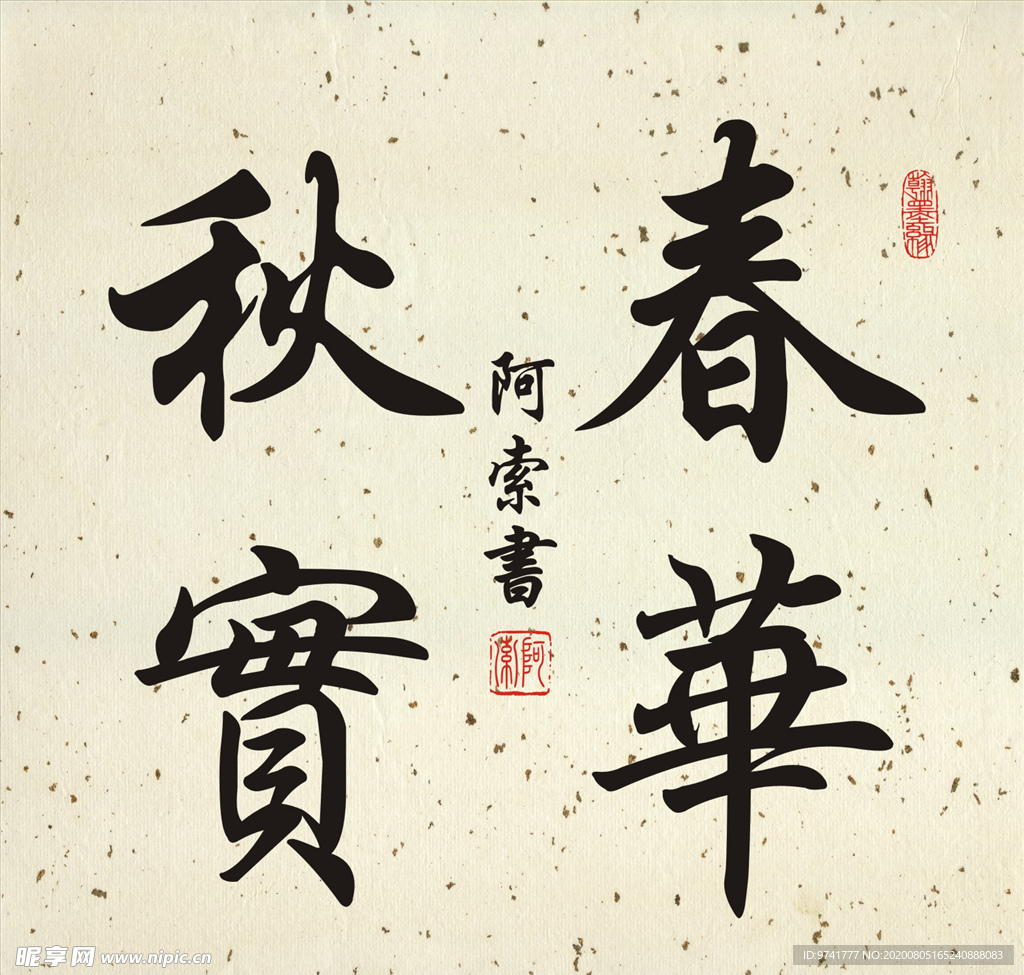 春華
秋實
阿索書
翰墨緣
阿索
昵享网 www.nipic.cn
ID:9741777 NO:20200805165240888083